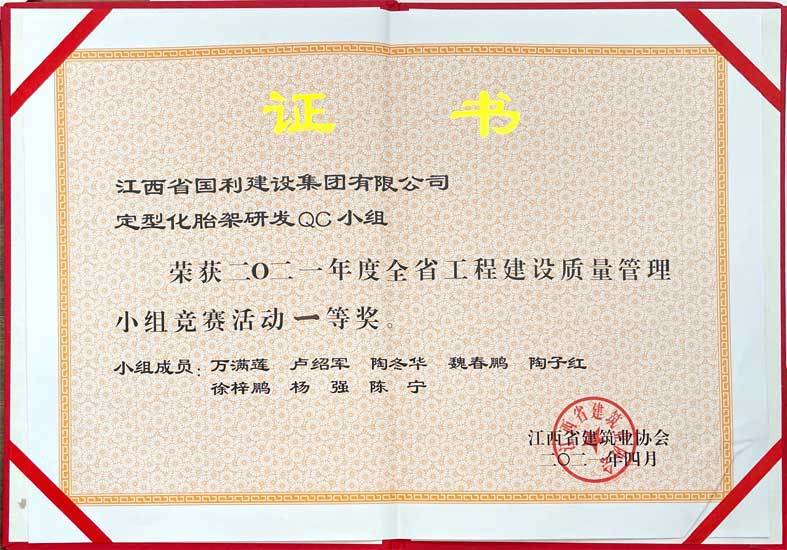 证 书
江西省国利建设集团有限公司
定型化胎架研发QC小组
荣获二〇二一年度全省工程建设质量管理
小组竞赛活动一等奖。
小组成员：万满莲 卢绍军 陶冬华 魏春鹏 陶子红
徐梓鹏 杨强 陈宁
江西省建筑业协会
二〇二一年四月
江西省建筑业协会